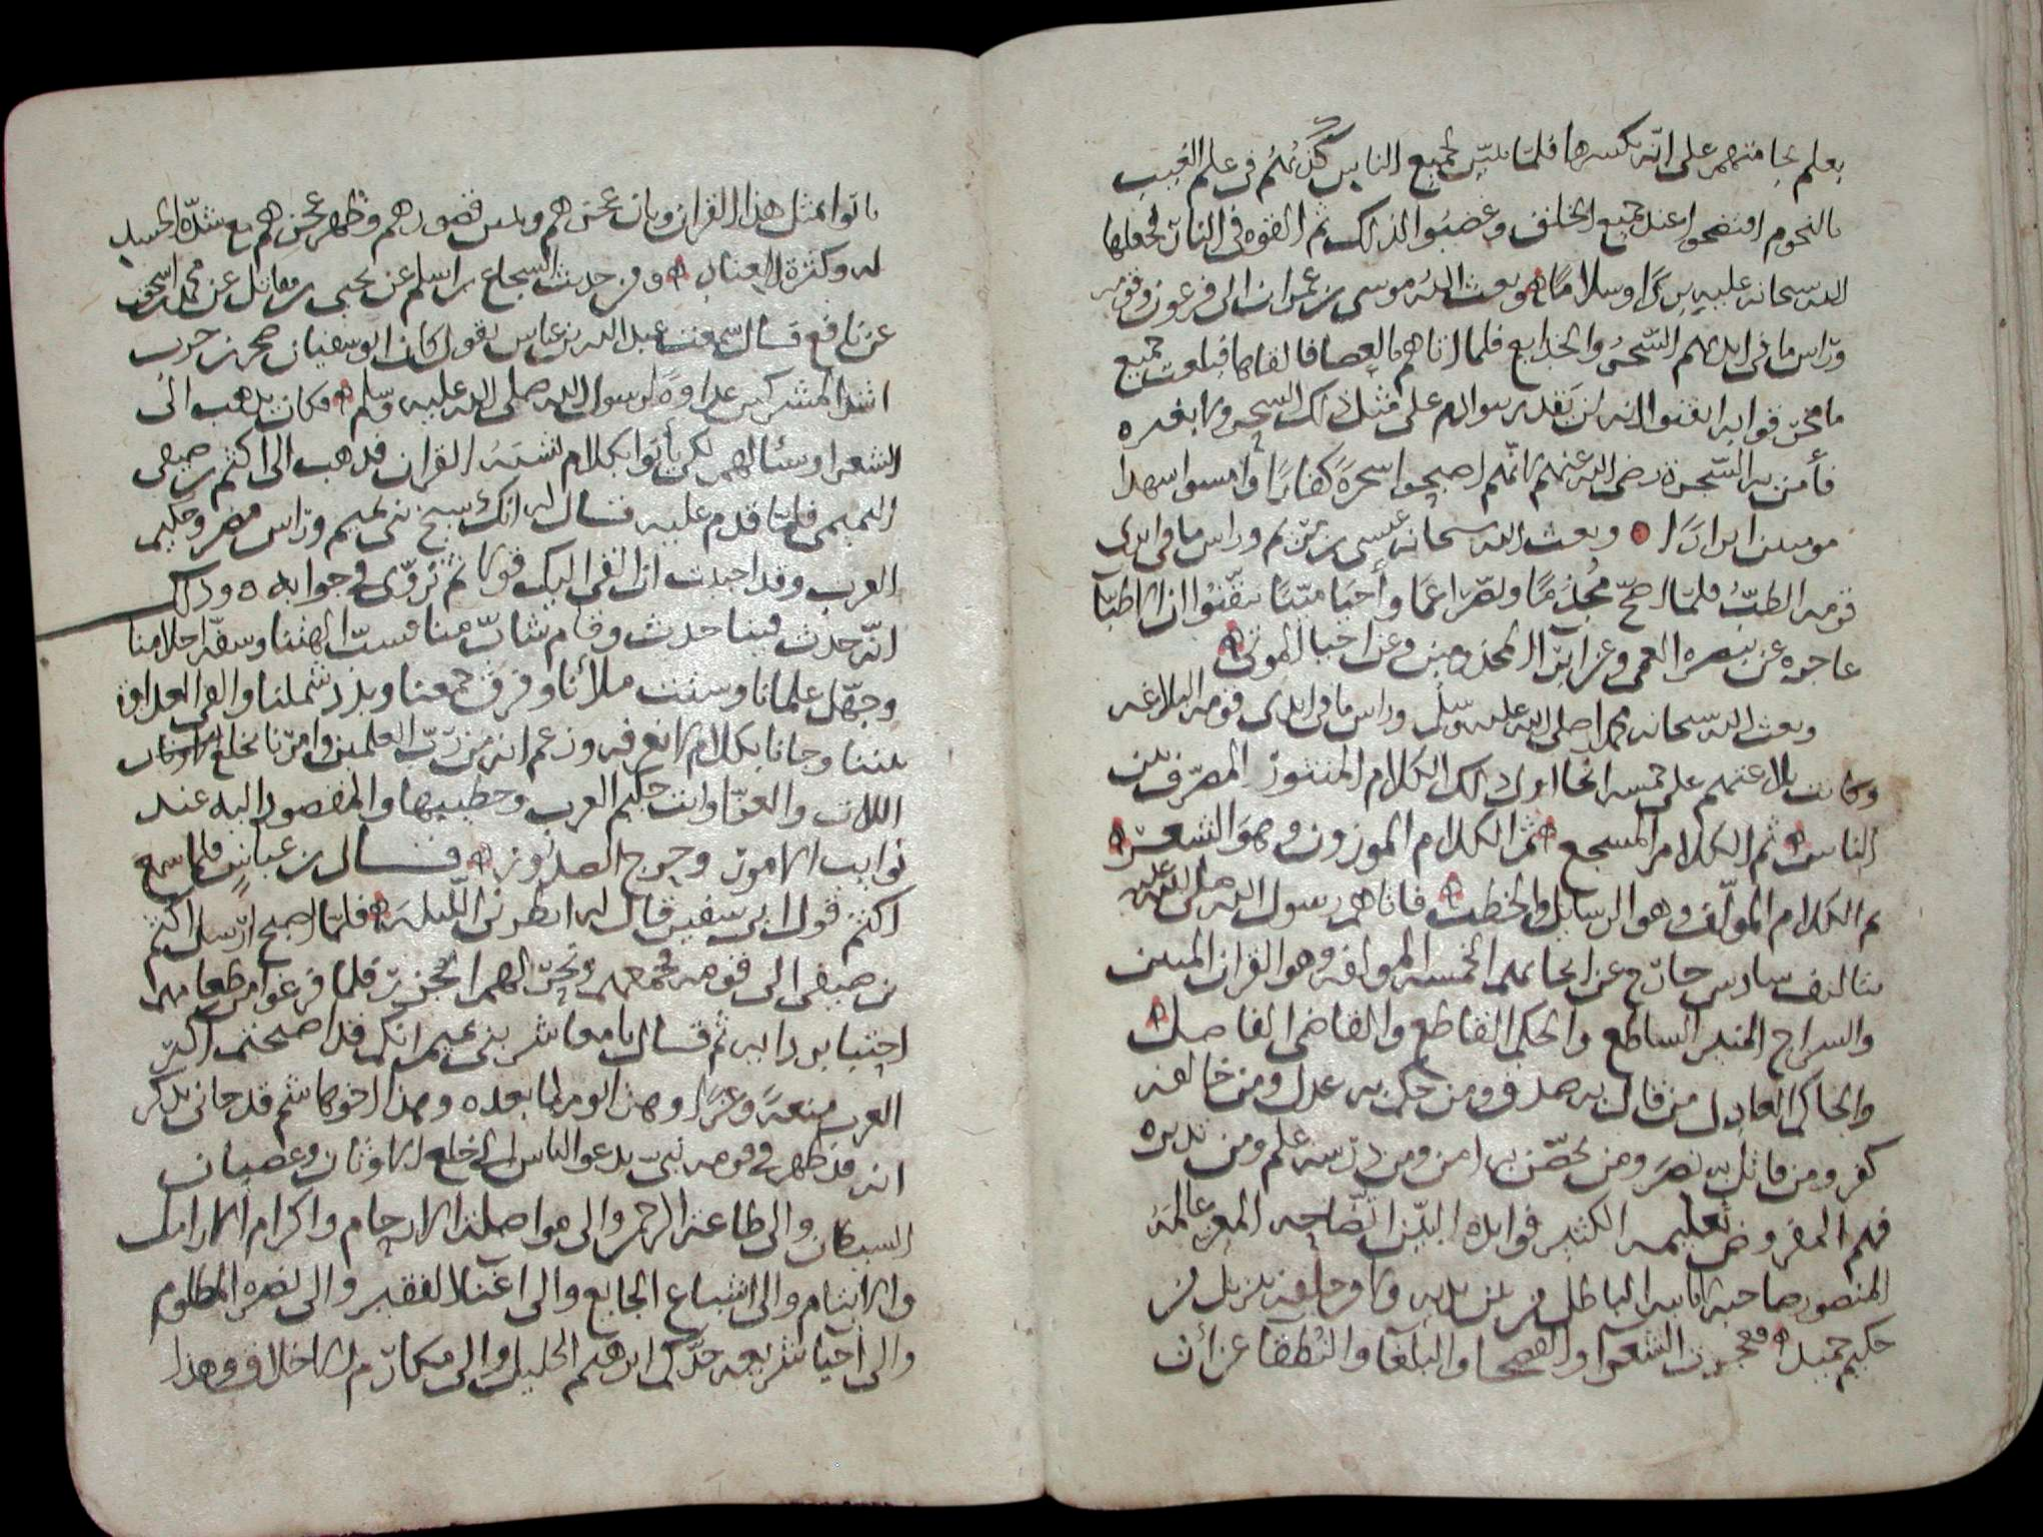 بعلم نجامتهم على انه يكسرها فلما تبين لجميع الناس كذبهم في علم الغيب
بالنجوم افتضحوا عند جميع الخلق وغضبوا لذلك ثم القوه في النار فجعلها
الله سبحانه عليه بردا وسلاما وبعث الله موسى بن عمران الى فرعون وقومه
وراس ما في ايديهم السحر والخدايع فلما اتاهم بالعصا فالقاها فبلعت جميع
ما مخرقوا به ايقنوا انه لن يقدر سواه على مثل ذلك السحر ولا بغيره
فأمن به السحرة رضى الله عنهم لانهم اصبحوا سحرة كفارا وامسوا شهدا
مومنين ابرارا وبعث الله سبحانه عيسى بن مريم وراس ما في ايدى
قومه الطب فلما اصح مجذما وبصر اعما وأحيا ميتا تيقنوا ان الاطبا
عاجزه عن تبصره العمى وعن ابرا المجذومين وعن احيا الموتى
وبعث الله سبحانه محمدا صلى الله عليه وسلم وراس ما في ايدى قومه البلاغه
وكانت بلاغتهم على خمسه انحا اول ذلك الكلام المنثور المصرف بين
الناس ثم الكلام المسجع ثم الكلام الموزون وهو الشعر
ثم الكلام المولف وهو الرسايل والخطب فاتاهم رسول الله صلى الله عليه
بتاليف سادس خارج عن انحايهم الخمسه المولفه وهو القران المبين
والسراج المنير الساطع والحكم القاطع والقاضى الفاصل
والحاكم العادل من قال به صدق ومن حكم به عدل ومن خالفه
كفر ومن قاتل به نصر ومن تحصن به امن ومن درسه علم ومن تدبره
فهم المفروض تعليمه الكثير فوايده البين ايضاحه المعز عالمه
المنصور صاحبه لا ياتيه الباطل من بين يديه ولا من خلفه تنزيل من
حكيم حميد فعجزت الشعرا والفصحا والبلغا والنطقا عن أن
ياتوا بمثل هذا القران وبان عجزهم وتبين قصورهم وظهر عجزهم مع شدة الحسد
له وكثرة العناد ومن حديث السجاع بن اسلم عن يحيى بن مقاتل عن محمد بن اسحق
عن نافع قال سمعت عبد الله بن عباس يقول كان ابو سفيان صخر بن حرب
اشد المشركين عداوة لرسول الله صلى الله عليه وسلم وكان يذهب الى
الشعرا وسئالهم لكى يأتوا بكلام يشبه القران فذهب الى اكثم بن صيفى
التميمى فلما قدم عليه قال له انك شيخ بنى تميم وراس مضر وحكيم
العرب وقد احببت ان القى اليك قولا ثم تروى في جوابه وذلك
انه حدث فينا حدث وقام شاب منا فسب الهتنا وسفه احلامنا
وجهل علمانا وشتت ملأنا وفرق جمعنا وبدد شملنا والقى العداوة
بيننا وجانا بكلام لا نعرفه وزعم انه من رب العلمين وامرنا بخلع الاوثان
اللات والعزا وانت حكيم العرب وخطيبها والمقصود اليه عند
نوايب الامور وحرج الصدور فقال بن عباس فلما سمع
اكثم قول ابى سفين قال له انظرنى الليله فلما اصبح ارسل اكثم
بن صيفى الى قومه فجمعهم ونحر لهم الجزر فلما فرغوا من طعامهم
احتبا بردايه ثم قال يا معاشر بنى تميم انكم قد اصبحتم اكثر
العرب منعة وعزا وهذا اليوم لما بعده وهذا اخو هاشم قد جانى يذكر
انه قد ظهر في قومه نبى يدعو الناس الى خلع الاوثان وعصيان
الشيطان والى طاعة الرحمن والى مواصلة الارحام واكرام الارامل
والايتام والى اشباع الجايع والى اغنا الفقير والى نصره المظلوم
والى احيا شريعه جدكم ابرهيم الخليل والى مكارم الاخلاق وهذا